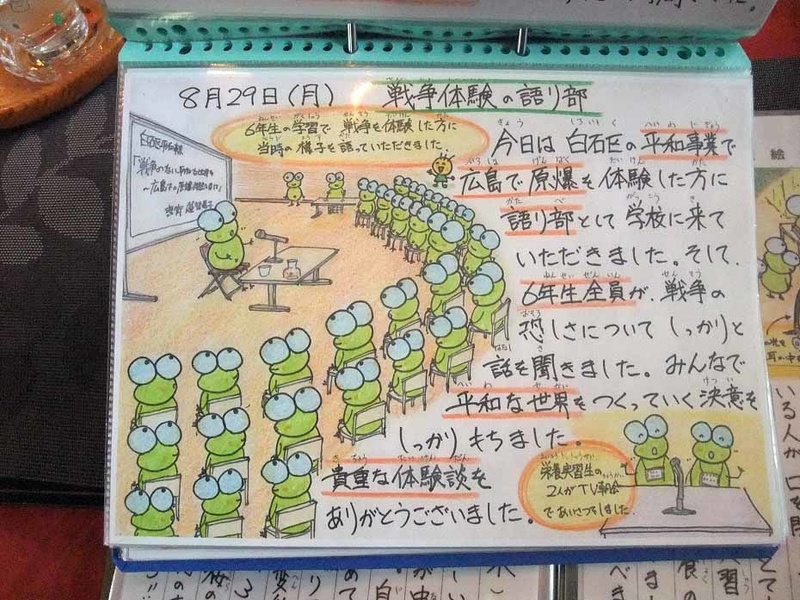 8月29日(月) 戦争体験の語り部
6年生の学習で戦争を体験した方に
当時の様子を語っていただきました。
今日は白石区の平和事業で
広島で原爆を体験した方に
語り部として学校に来て
いただきました。そして、
6年生全員が、戦争の
恐しさについてしっかりと
話を聞きました。みんなで
平和な世界をつくっていく決意を
しっかりもちました。
貴重な体験談を
ありがとうございました。
栄養実習生の
2人がTV朝会
であいさつしました
白石区平和
「戦争のない
~広島での原爆
絵
いる人が